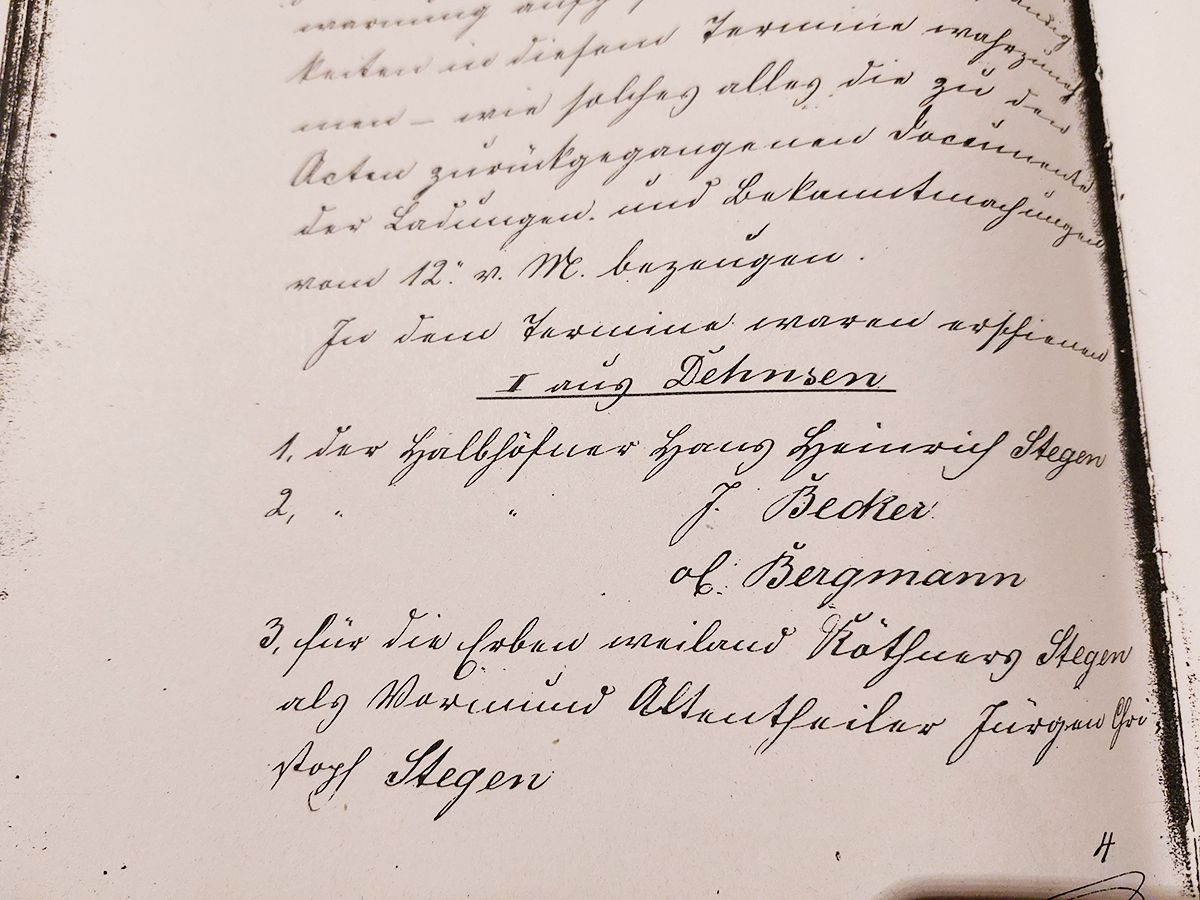 warnung
keiten in diesem Termine wahrzuneh
men – wie solches alles die zu den
Acten zurückgegangenen Documente
der Ladungen und Bekanntmachungen
vom 12. v. M. bezeugen.
In dem Termine waren erschienen
I aus Dehnsen
1, der Halbhöfner Hans Heinrich Stegen
2, " " J. Becker
Bergmann
3, für die Erben weiland Köthners Stegen
als Vormund Altentheiler Jürgen Chri
stoph Stegen
4